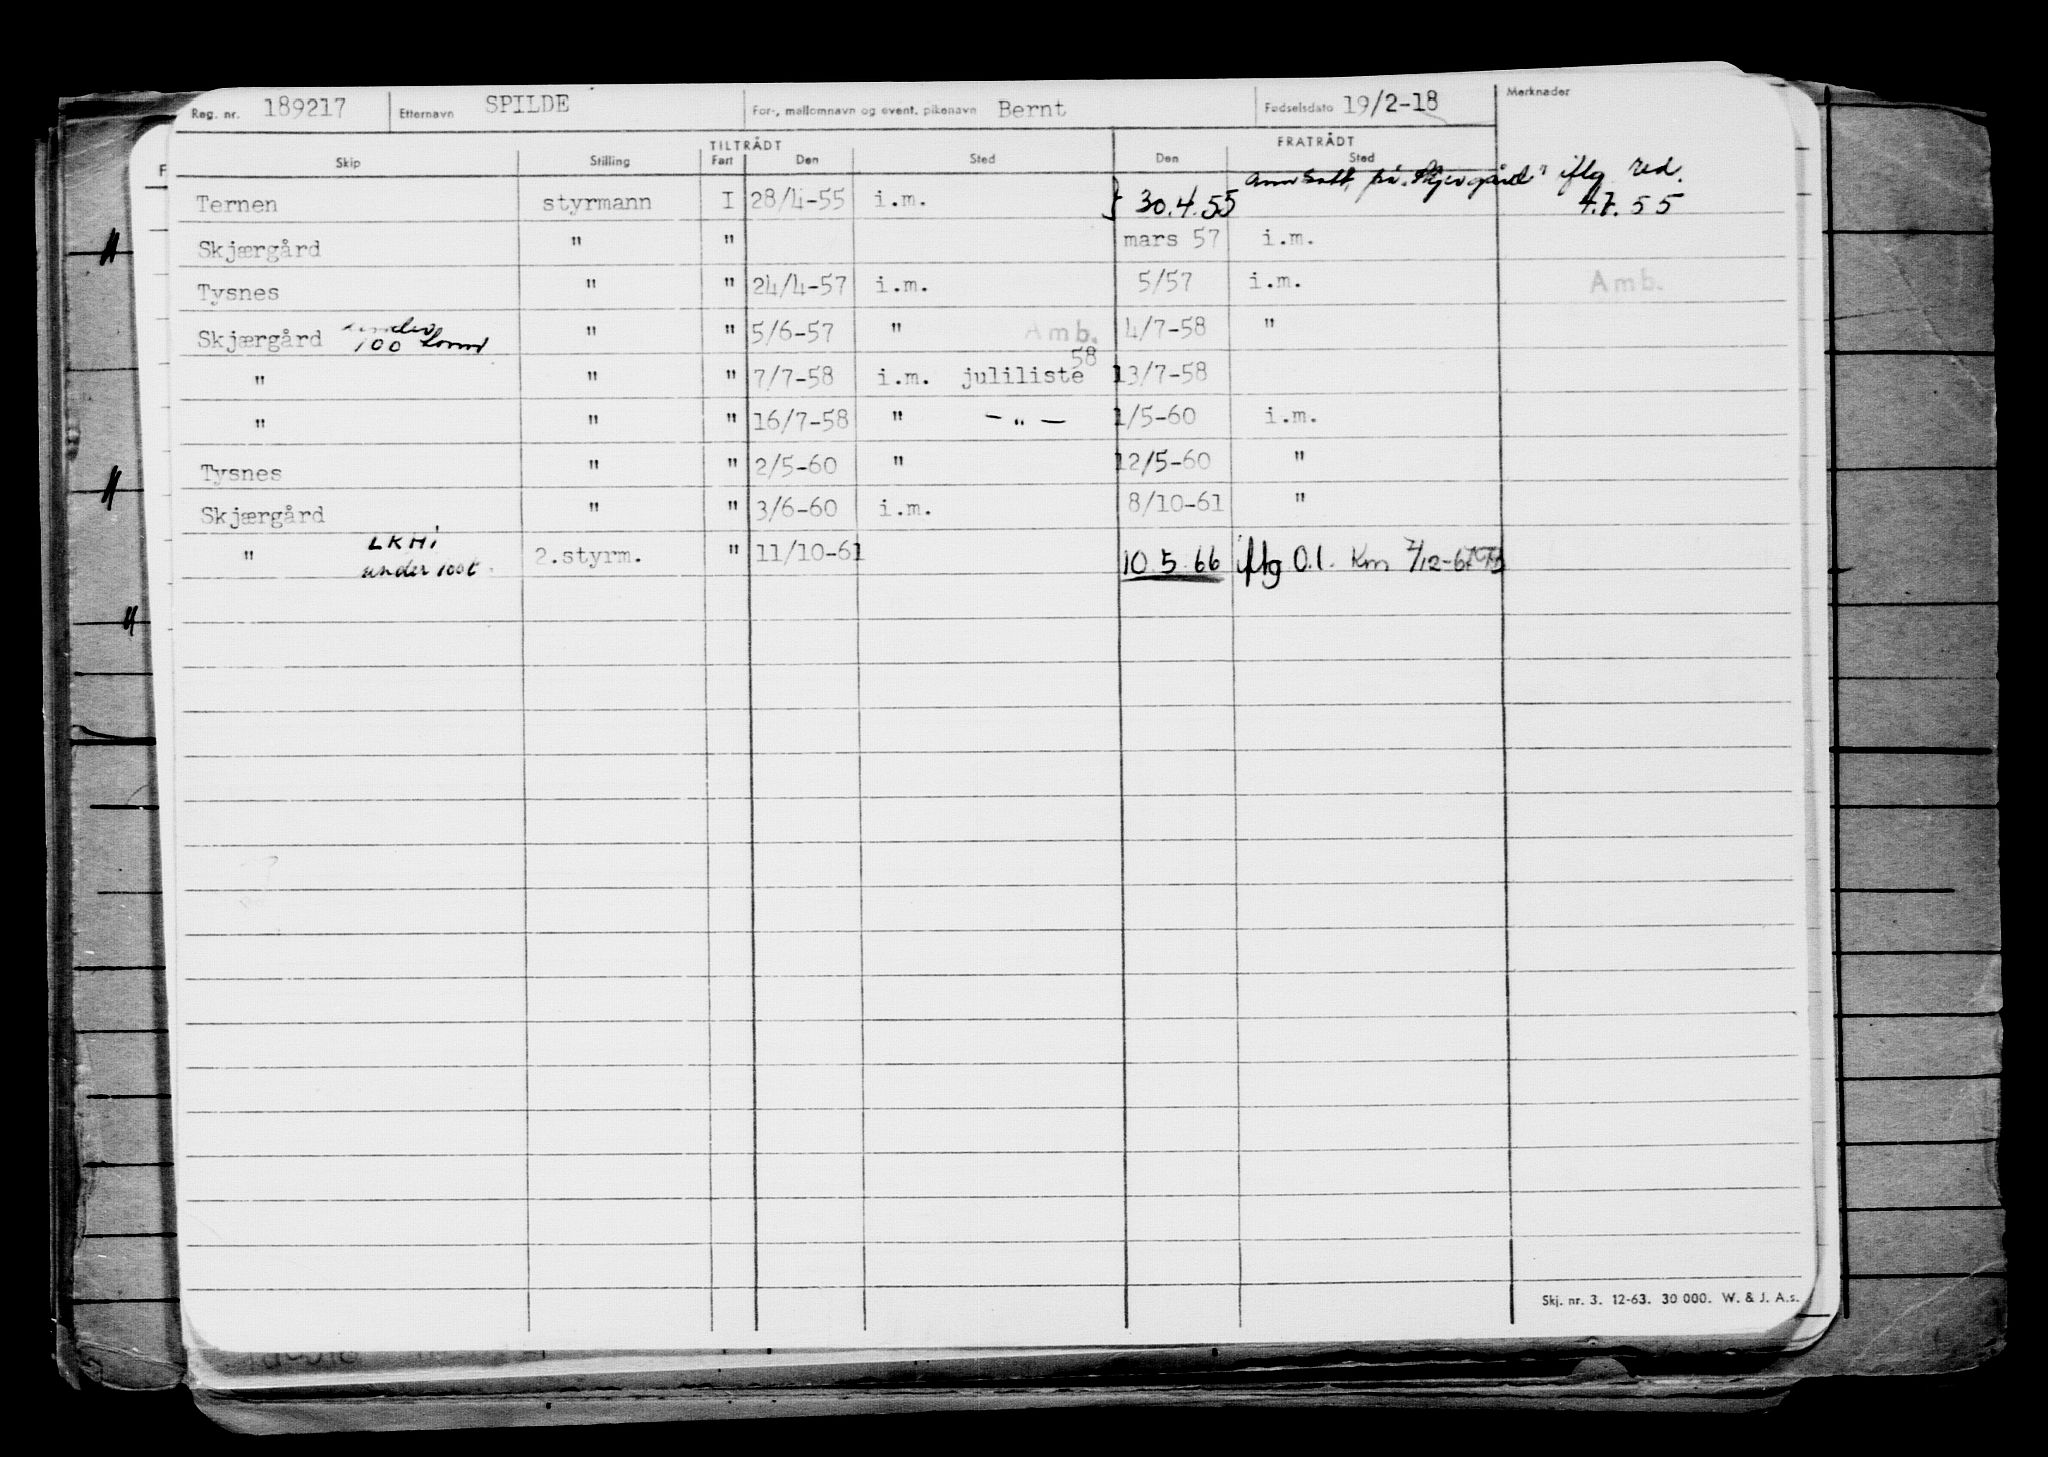 Reg. nr. 189217 Etternavn SPILDE For-, mellomnavn og event. pikenavn Bernt Fødselsdato 19/2-18 Merknader
TILTRÅDT FRATRÅDT
Skip Stilling Fart Den Sted Den Sted
på iflg red.
Ternen styrmann I 28/4-55 i.m. 30.4.55 4.7.55
Skjærgård " " mars 57 i.m.
Tysnes " " 24/4-57 i.m. 5/57 i.m. Amb.
Skjærgård under 100 tonn " " 5/6-57 " Amb. 4/7-58 "
" " " 7/7-58 i.m. juliliste 58 13/7-58
" " " 16/7-58 " — " — 1/5-60 i.m.
Tysnes " " 2/5-60 " 12/5-60 "
Skjærgård " " 3/6-60 i.m. 8/10-61 "
" LKHI under 100t. 2.styrm. " 11/10-61 10.5.66 iflg O.l. Km
Skj. nr. 3. 12-63. 30 000. W. & J. A.s.